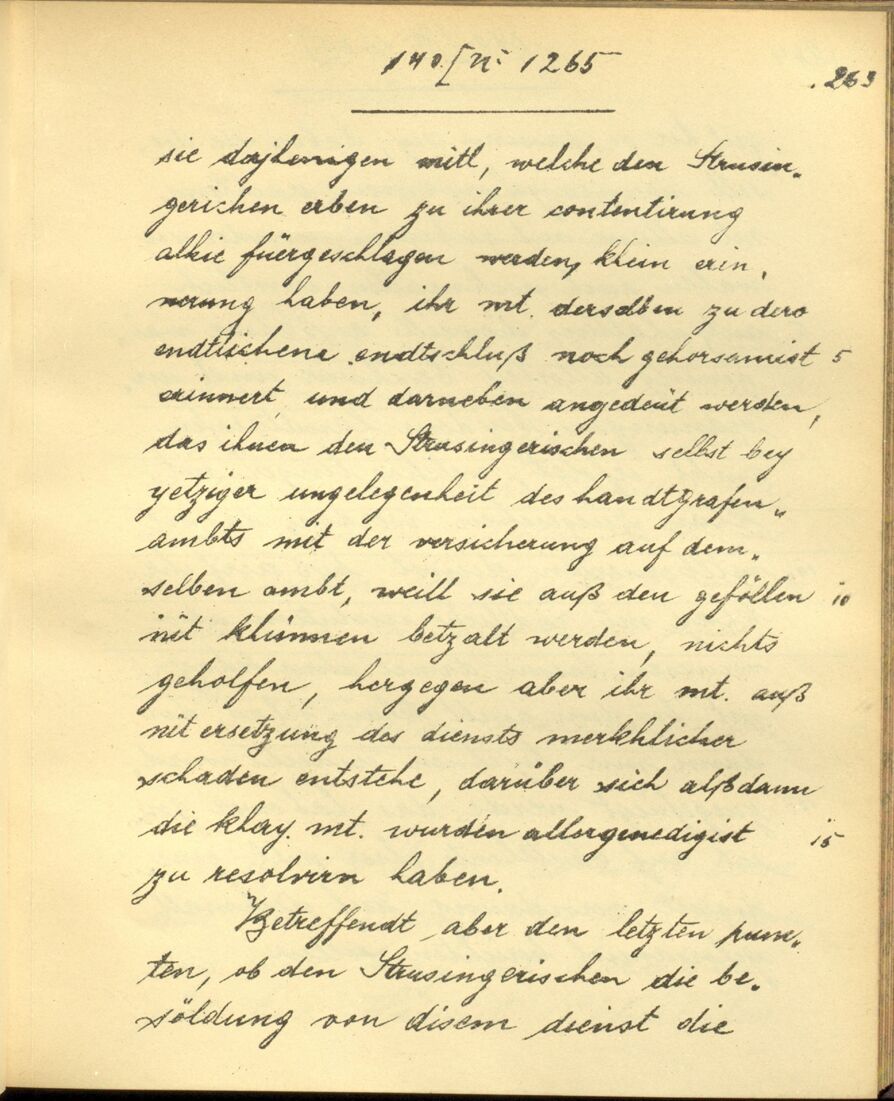 140. [N: 1265
263
sie dajhenigen mitl, welche den Strusin„
gerichen erben zu ihrer contentirung
alhie füergeschlagen werden, khlein erin„
nerung haben, ihr mt. derselben zu dero
endtlichene endtschluß noch gehorsamist 5
erinnert und darneben angedeut werden,
das ihnen den Strusingerischen selbst bey
yetziger ungelegenheit des handtgrafen„
ambts mit der versicherung auf dem„
selben ambt, weill sie auß den geföllen 10
nit khünnen betzalt werden, nichts
geholfen, hergegen aber ihr mt. auß
nit ersetzung des diensts merkhlicher
schaden entstehe, darüber sich alßdann
die khay. mt. wurden allergenedigist 15
zu resolvirn haben.
Betreffendt aber den letzten punc„
ten, ob den Strusingerischen die be„
söldung von disem dienst die